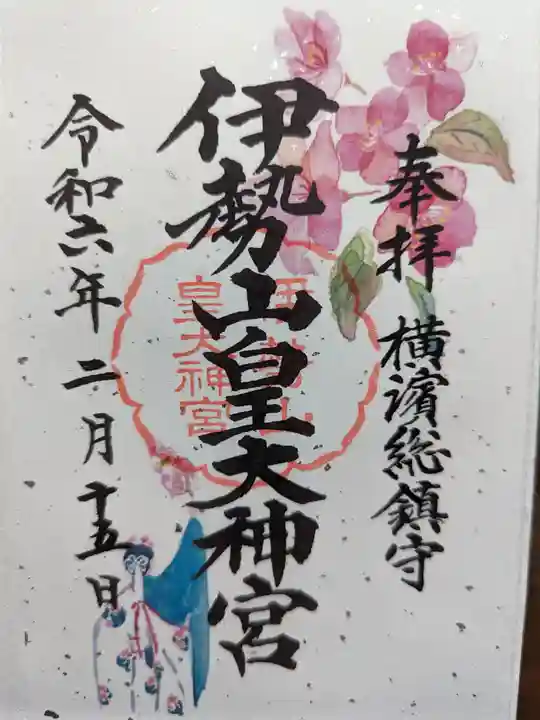 奉拝 横濱総鎮守
伊勢山皇大神宮
伊勢山
皇大神宮
令和六年二月十五日